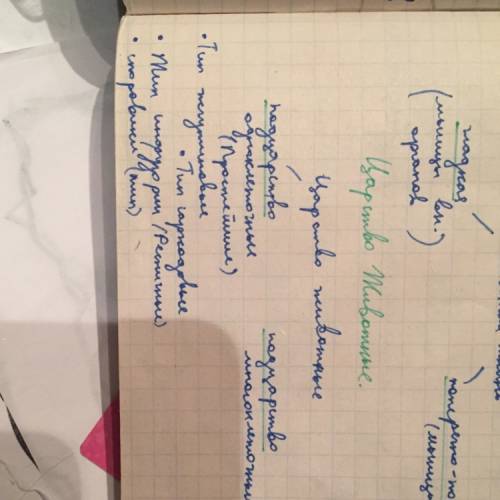 гладкая
(мышцы вн.
органов)
поперечно-п
(мышц
Царство Животные.
Царство животные
подцарство
одноклеточные
(Простейшие)
подцарство
многоклеточны
• Тип жгутиковые
• Тип саркодовые
• Тип инфузории (Ресничные)
• споровики (тип)